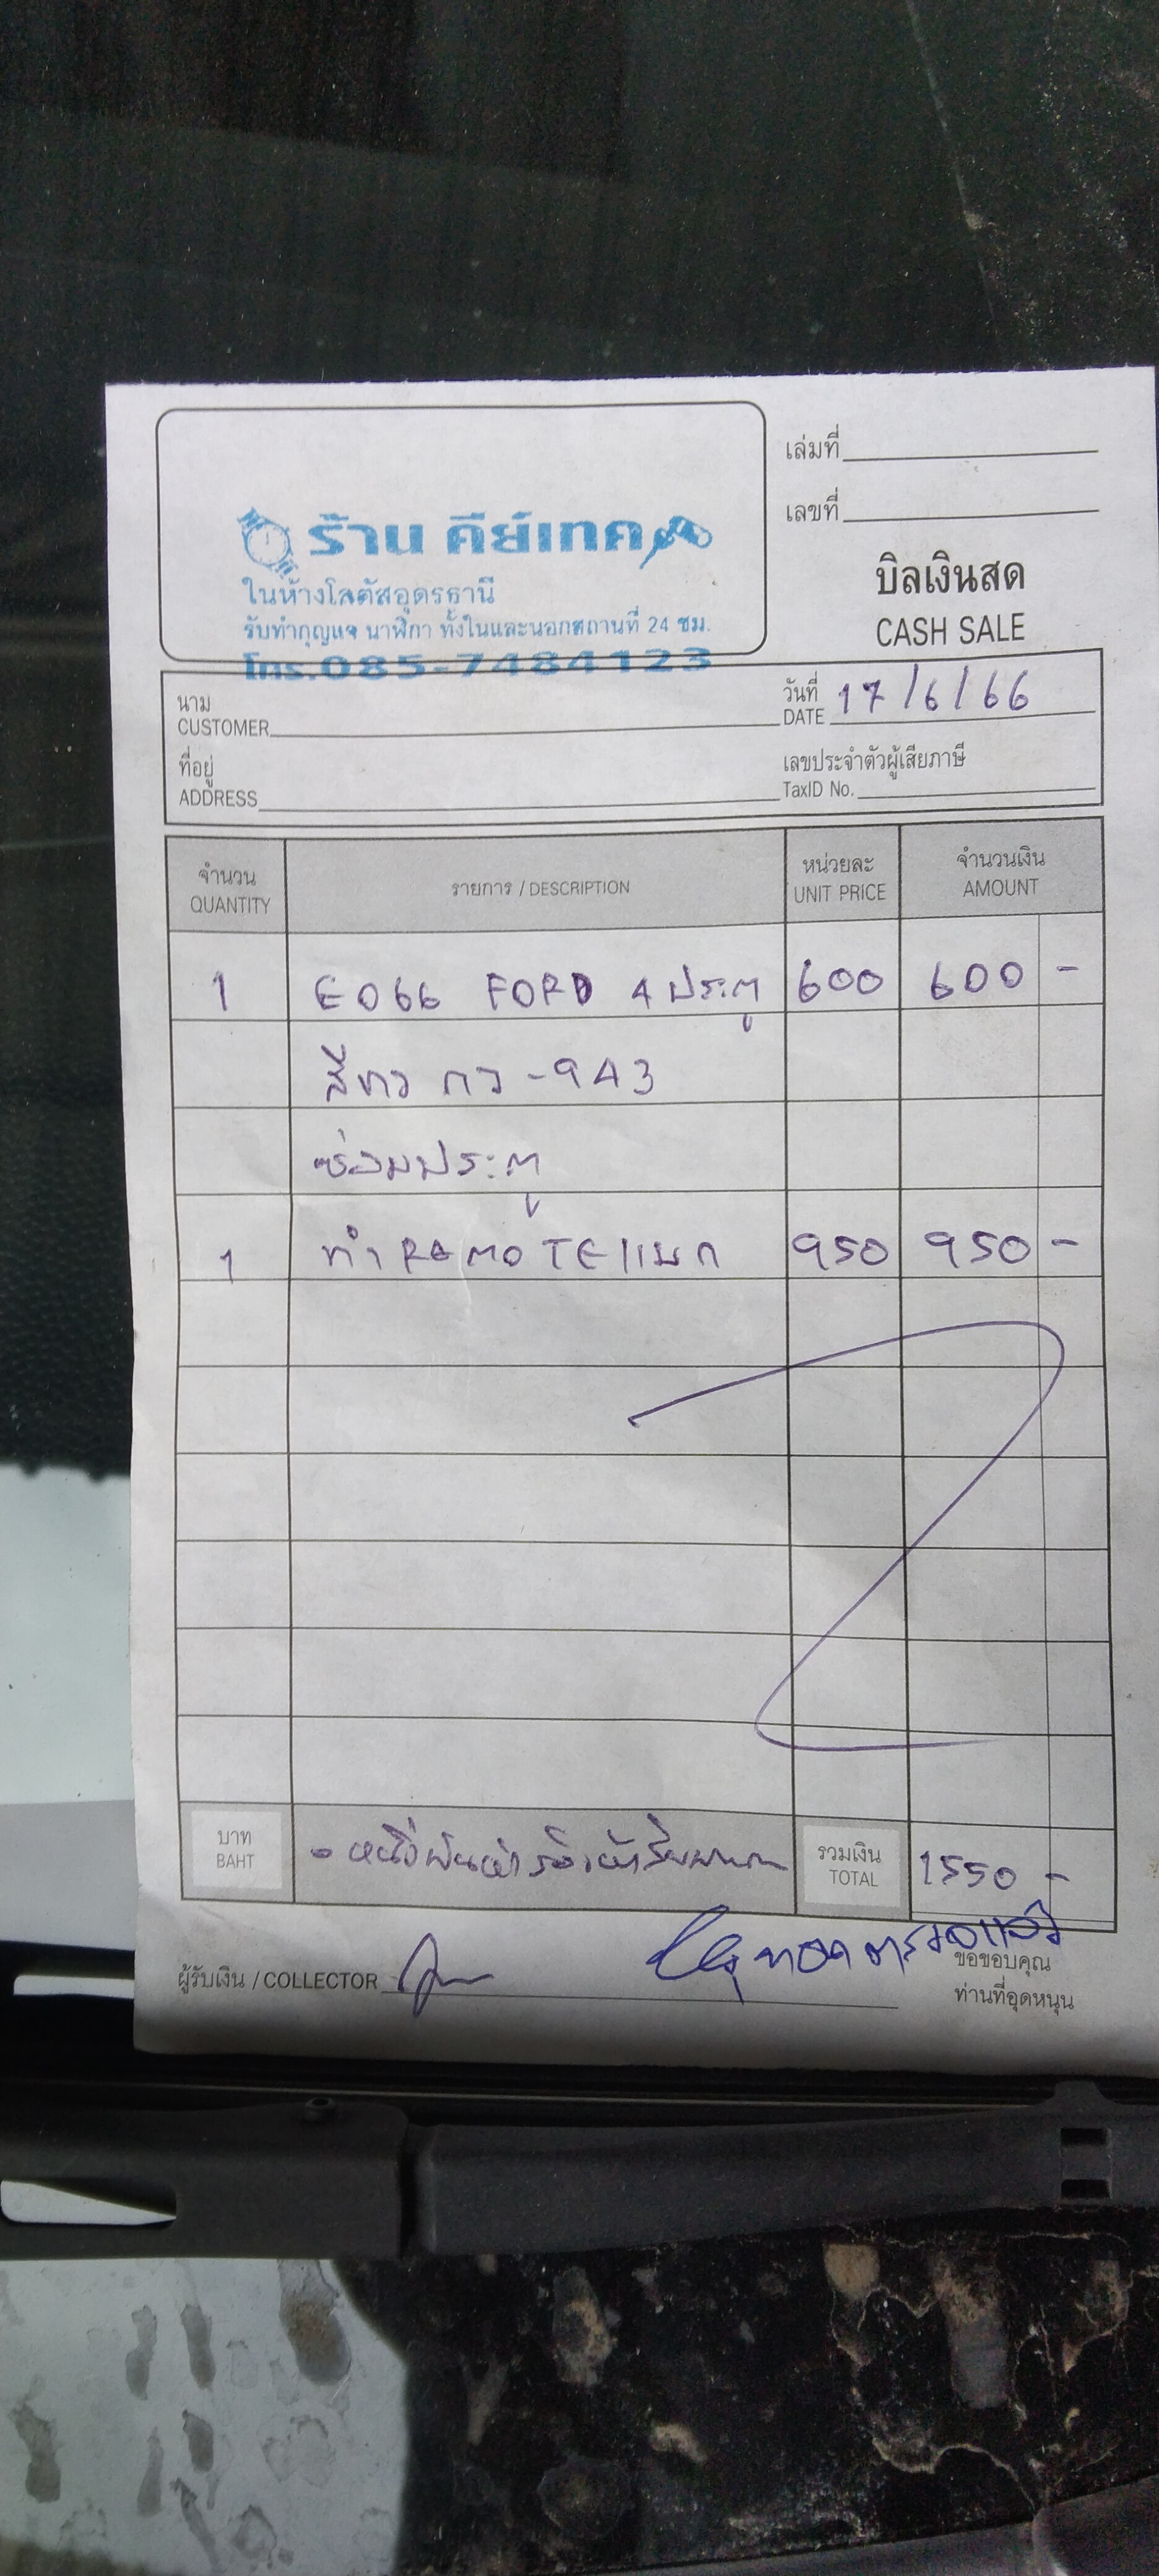 เล่มที่
เลขที่
ร้าน คีย์เทค
ในห้างโลตัสอุดรธานี
รับทำกุญแจ นาฬิกา ทั้งในและนอกสถานที่ 24 ชม.
โทร.085-7484123
บิลเงินสด
CASH SALE
นาม
CUSTOMER
วันที่ 17/6/66
DATE
ที่อยู่
ADDRESS
เลขประจำตัวผู้เสียภาษี
TaxID No.
จำนวน
QUANTITY
รายการ / DESCRIPTION
หน่วยละ
UNIT PRICE
จำนวนเงิน
AMOUNT
1 E066 FORD 4 ประตู 600 600 -
สีขาว กว-943
ซ่อมประตู
1 ทำ REMOTE แยก 950 950 -
บาท
BAHT
รวมเงิน
TOTAL
1550 -
ผู้รับเงิน / COLLECTOR
ขอขอบคุณ
ท่านที่อุดหนุน